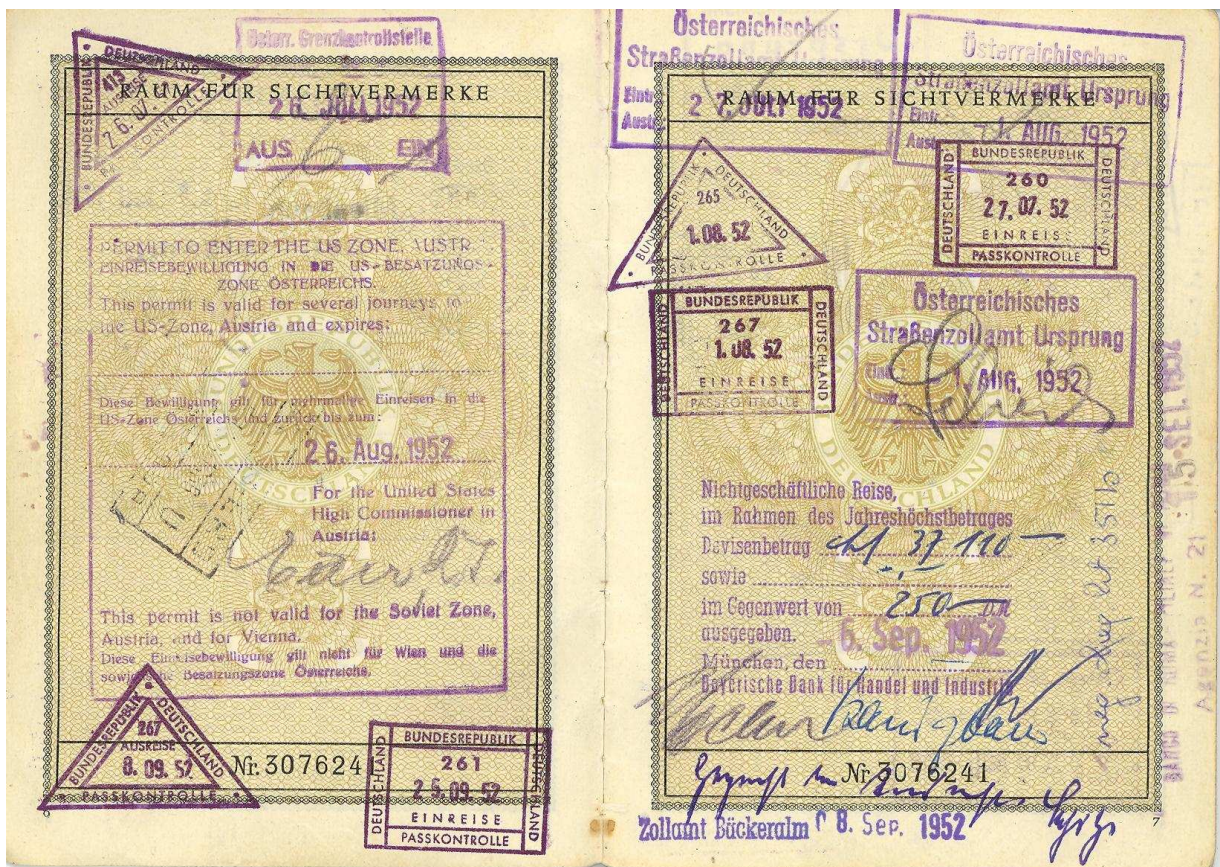 RAUM FÜR SICHTVERMERKE
BUNDESREPUBLIK DEUTSCHLAND
413
AUSREISE
26.07.
Österr. Grenzkontrollstelle
26. JULI 1952
AUS EIN
PERMIT TO ENTER THE US ZONE, AUSTR
EINREISEBEWILLIGUNG IN DIE US-BESATZUNGS-
ZONE ÖSTERREICHS.
This permit is valid for several journeys to
the US-Zone, Austria and expires:
Diese Bewilligung gilt für mehrmalige Einreisen in die
US-Zone Österreichs und zurück bis zum:
26. Aug. 1952
For the United States
High Commissioner in
Austria:
This permit is not valid for the Soviet Zone,
Austria, and for Vienna.
Diese Einreisebewilligung gilt nicht für Wien und die
sowjetische Besatzungszone Österreichs.
BUNDESREPUBLIK DEUTSCHLAND
267
AUSREISE
8.09.52
PASSKONTROLLE
Nr. 3076241
BUNDESREPUBLIK
DEUTSCHLAND
261
25.09.52
EINREISE
PASSKONTROLLE
Österreichisches
27. JULI 1952
Österreichisches
Straßenzollamt Ursprung
1. AUG. 1952
RAUM FÜR SICHTVERMERKE
BUNDESREPUBLIK DEUTSCHLAND
265
1.08.52
PASSKONTROLLE
BUNDESREPUBLIK
DEUTSCHLAND
260
27.07.52
EINREISE
PASSKONTROLLE
BUNDESREPUBLIK
DEUTSCHLAND
267
1.08.52
EINREISE
PASSKONTROLLE
Österreichisches
Straßenzollamt Ursprung
1. AUG. 1952
Nichtgeschäftliche Reise,
im Rahmen des Jahreshöchstbetrages
Devisenbetrag
sowie
im Gegenwert von 250 DM
ausgegeben.
6. Sep. 1952
München, den
Bayerische Bank für Handel und Industrie
Nr. 3076241
Zollamt Bäckeralm 8. Sep. 1952
7